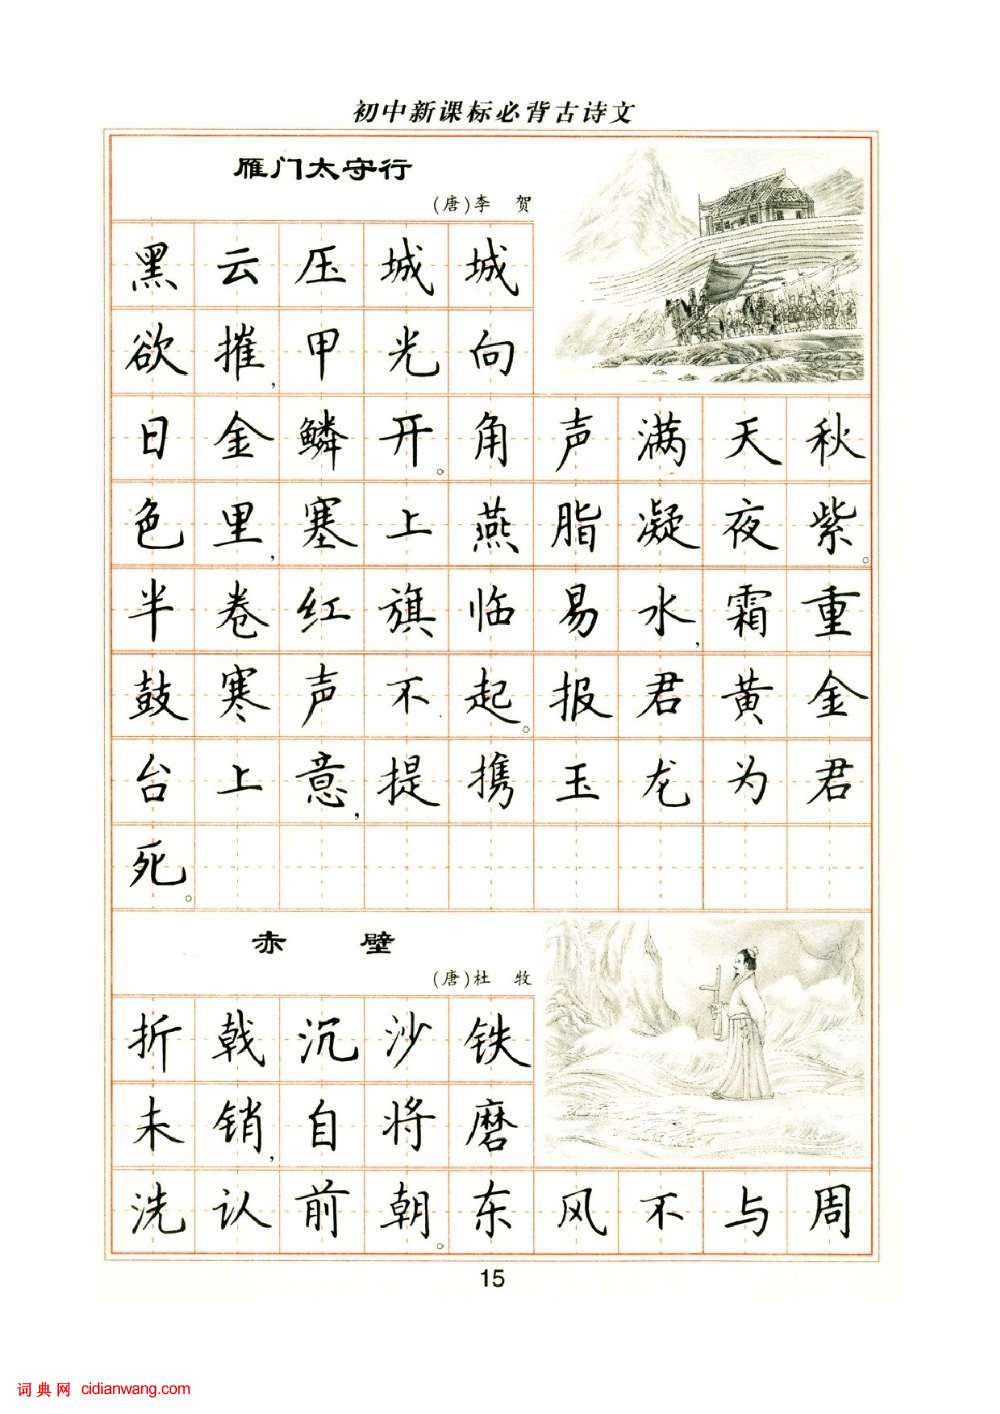 初中新课标必背古诗文
雁门太守行
(唐)李 贺
黑云压城城
欲摧,甲光向
日金鳞开。角声满天秋
色里,塞上燕脂凝夜紫。
半卷红旗临易水,霜重
鼓寒声不起。报君黄金
台上意,提携玉龙为君
死。
赤 壁
(唐)杜 牧
折戟沉沙铁
未销,自将磨
洗认前朝。东风不与周
15
词典网 cidianwang.com